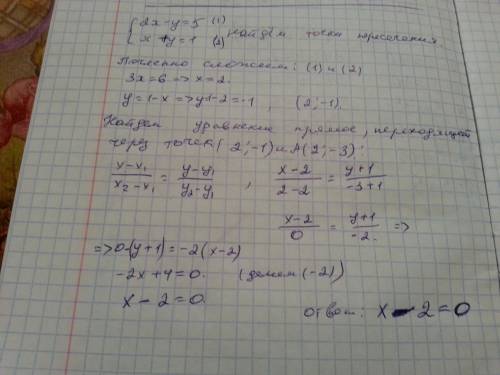 { 2x-y=5 (1)
x+y=1 (2) найдём точки пересечения
Почленно сложаем: (1) и (2)
3x=6 => x=2.
y=1-x => y=1-2=-1, (2;-1).
Найдем уравнение прямое, переходящей
через точек (2;-1) и A(2;-3):
(x-x₁)/(x₂-x₁) = (y-y₁)/(y₂-y₁), (x-2)/(2-2) = (y+1)/(-3+1)
(x-2)/0 = (y+1)/-2. =>
=> 0·(y+1)=-2(x-2)
-2x+4=0. (делем (-2))
x-2=0.
Ответ: x-2=0